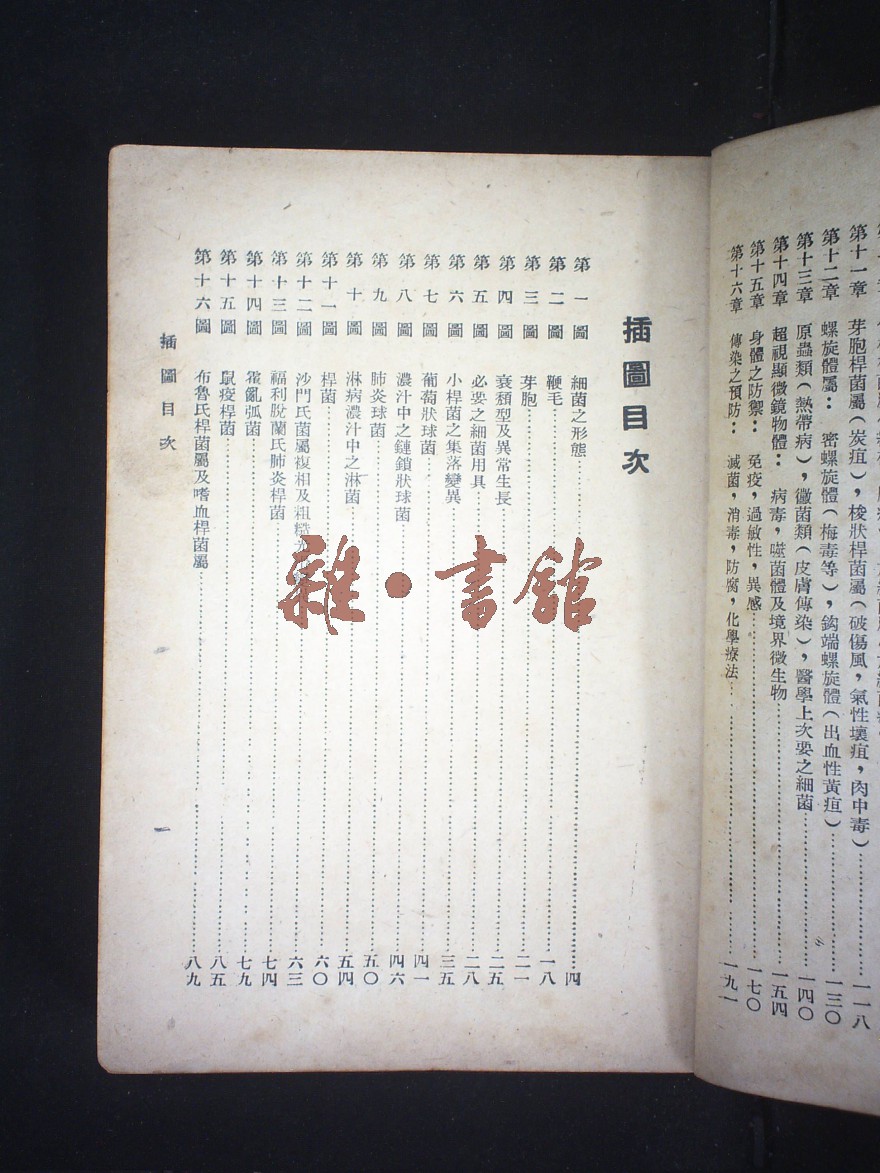 第十一章 芽胞桿菌屬(炭疽),梭狀桿菌屬(破傷風,氣性壞疽,肉中毒)……一一八
第十二章 螺旋體屬: 密螺旋體(梅毒等),鈎端螺旋體(出血性黃疸)……一三〇
第十三章 原蟲類(熱帶病),黴菌類(皮膚傳染),醫學上次要之細菌……一四〇
第十四章 超視顯微鏡物體: 病毒,噬菌體及境界微生物……一五四
第十五章 身體之防禦: 免疫,過敏性,異感……一七〇
第十六章 傳染之預防: 滅菌,消毒,防腐,化學療法……一九一
插圖目次
第一圖 細菌之形態……四
第二圖 鞭毛……一八
第三圖 芽胞……二一
第四圖 衰頹型及異常生長……二五
第五圖 必要之細菌用具……二八
第六圖 小桿菌之集落變異……三五
第七圖 葡萄狀球菌……四一
第八圖 濃汁中之鏈鎖狀球菌……四六
第九圖 肺炎球菌……五〇
第十圖 淋病濃汁中之淋菌……五四
第十一圖 桿菌……六〇
第十二圖 沙門氏菌屬複相及粗糙……六三
第十三圖 福利脫蘭氏肺炎桿菌……七四
第十四圖 霍亂弧菌……七九
第十五圖 鼠疫桿菌……八五
第十六圖 布魯氏桿菌屬及嗜血桿菌屬……八九
插圖目次
一
雜·書館